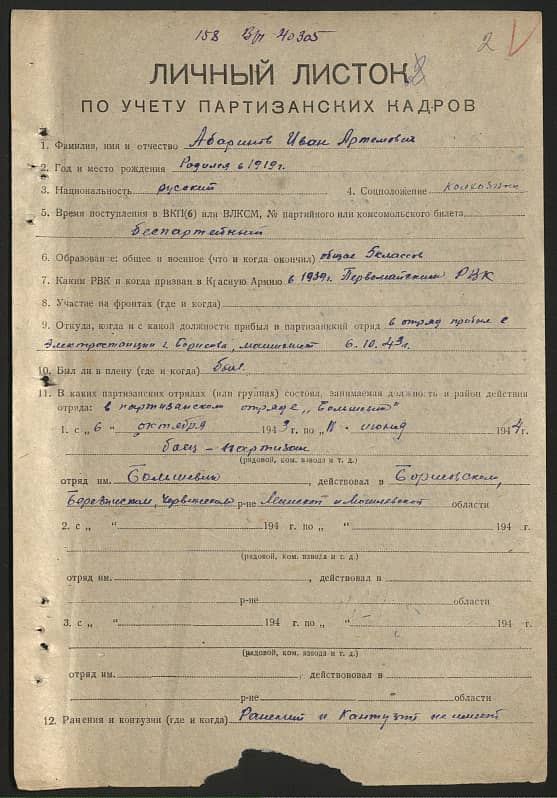 158 В/п 40305
2
ЛИЧНЫЙ ЛИСТОК
ПО УЧЕТУ ПАРТИЗАНСКИХ КАДРОВ
1. Фамилия, имя и отчество Абаринов Иван Артемович
2. Год и место рождения Родился в 1919г.
3. Национальность русский 4. Соцположение
5. Время поступления в ВКП(б) или ВЛКСМ, № партийного или комсомольского билета
беспартейный
6. Образование: общее и военное (что и когда окончил) общее 5 классов
7. Каким РВК и когда призван в Красную Армию в 1939г. Первомайским РВК
8. Участие на фронтах (где и когда)
9. Откуда, когда и с какой должности прибыл в партизанский отряд в отряд прибыл с
Электростанции г. Борисова, машинист 6.10.43г.
10. Был ли в плену (где и когда) был
11. В каких партизанских отрядах (или группах) состоял, занимаемая должность и район действия
отряда: в партизанском отряде „Большевик"
1. с „ 6 " октября 1943 г. по „ " июня 1944 г.
боец - партизан
(рядовой, ком. взвода и т. д.)
отряд им. Большевик, действовал в Борисовском,
Березинском, Червенском р-не Минской и Могилевской области
2. с „ " 194 г. по „ " 194 г.
(рядовой, ком. взвода и т. д.)
отряд им. , действовал в
р-не области
3. с „ " 194 г. по „ " 194 г.
(рядовой, ком. взвода и т. д.)
отряд им. , действовал в
р-не области
12. Ранения и контузии (где и когда) Ранений и Кантузий не имеет